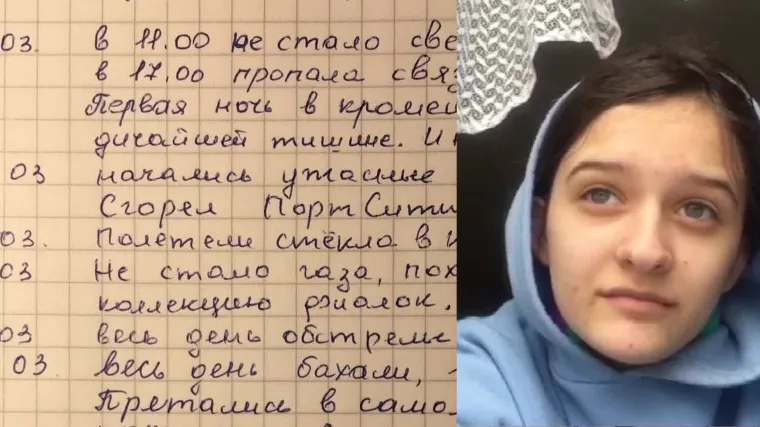 03. в 11.00 не стало све
в 17.00 пропала связ
Первая ночь в кромеш
дичайшей тишине. И
03 начались ужасные
Сгорел Порт Сити
03. Полетели стёкла в
03 Не стало газа, пох
коллекцию фиалок.
03 весь день обстрелы
03 весь день бахали,
Прятались в само